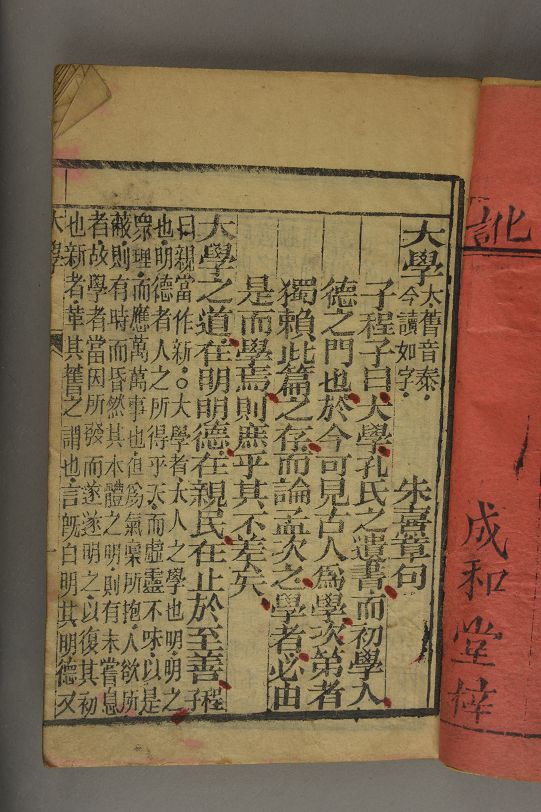 訛
成和堂梓
大學 大舊音泰今讀如字 朱熹章句
子程子曰大學孔氏之遺書而初學入
德之門也於今可見古人爲學次第者
獨賴此篇之存而論孟次之學者必由
是而學焉則庶乎其不差矣
大學之道在明明德在親民在止於至善 程子
曰親當作新○大學者大人之學也明明之
也明德者人之所得乎天而虛靈不昧以是
衆理而應萬萬事也但爲氣稟所抱人欲所
蔽則有時而昏然其本體之明則有未嘗息
者故學者當因所發而遂遂明之以復其初
也新者革其舊之謂也言旣自明其明德又
大學